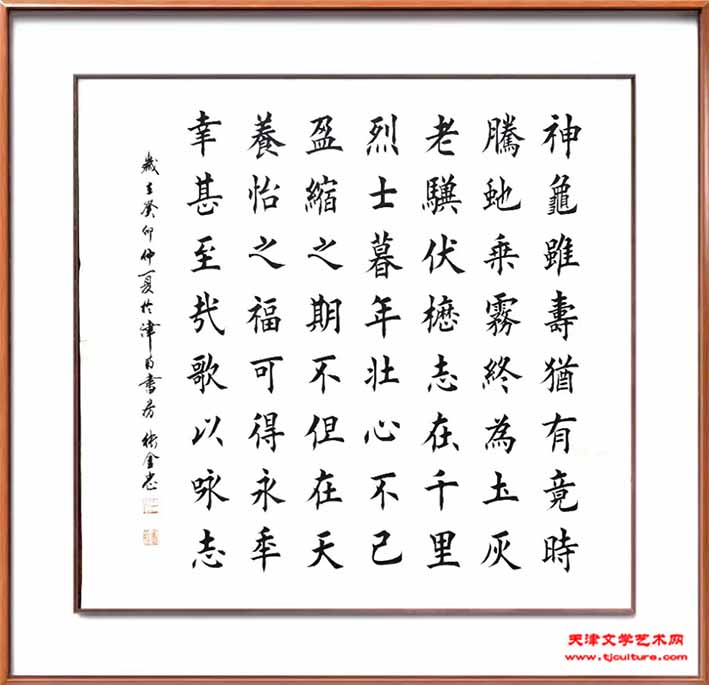 神龜雖壽猶有竟時
騰虵乗霧終為土灰
老驥伏櫪志在千里
烈士暮年壯心不已
盈縮之期不但在天
養怡之福可得永年
幸甚至哉歌以咏志
歲在癸卯仲夏於津白書房 金忠
天津文学艺术网
www.tjculture.com